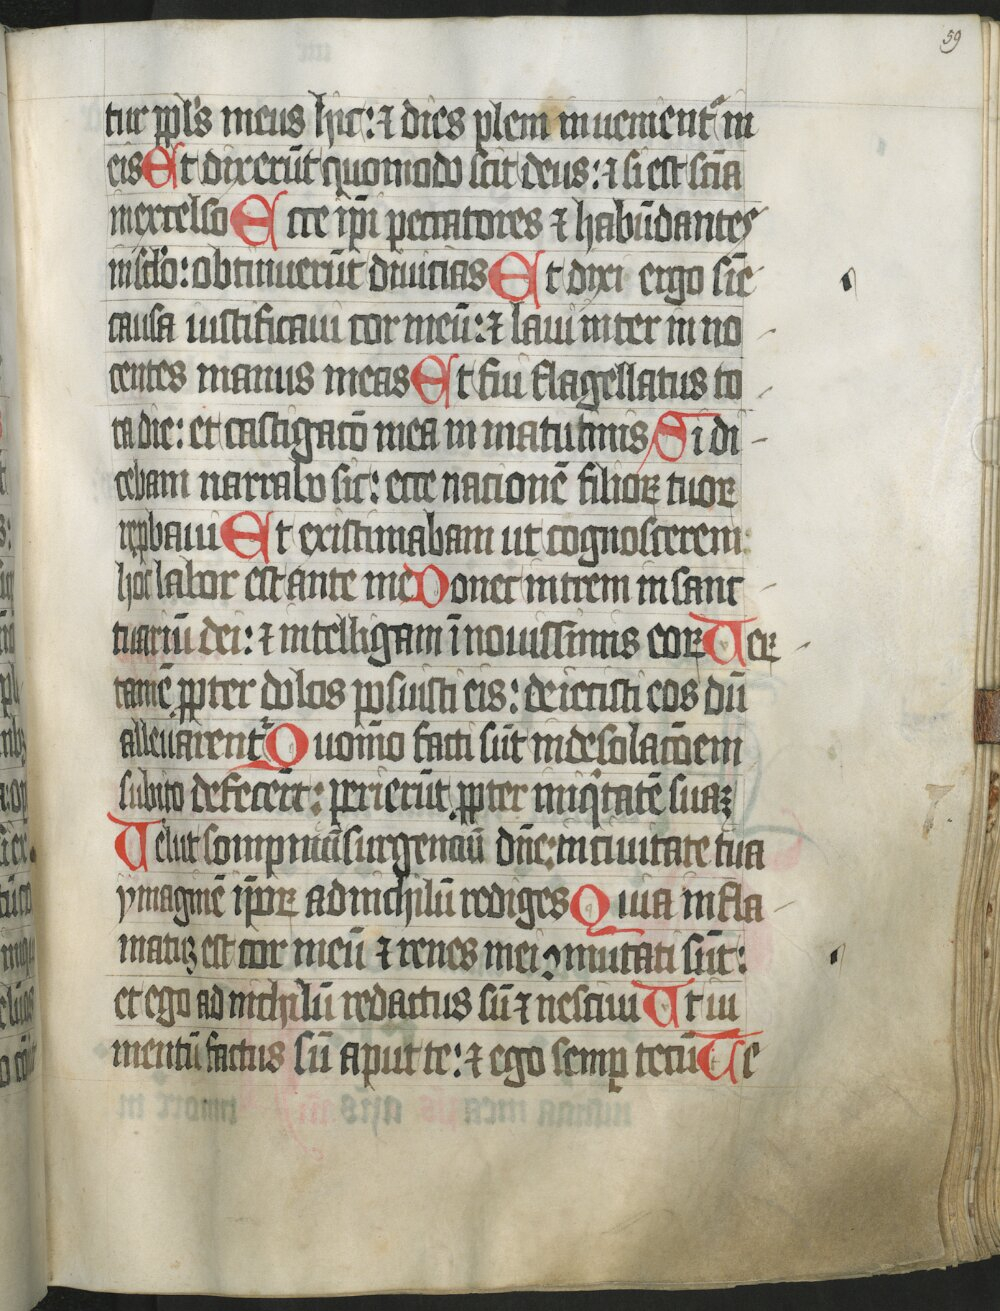 59
tur ppl's meus hic: ⁊ dies pleni inuenient᷑ in
eis Et dixerūt quomodo scit deus: ⁊ si est sciā
inexcelso Ecce ip̄i peccatores ⁊ habūdantes
inscl̄o: obtinuerūt diuicias Et dixi ergo sīe
causa iustificaui cor meū: ⁊ laui inter inno
centes manus meas Et fui flagellatus to
ta die: et castigacō mea in matutinis Si di
cebam narrabo sic: ecce nacionē filioꝝ tuoꝝ
repbaui Et existimabam ut cognoscerem:
hoc labor est ante me Donec intrem in sanc
tuariū dei: ⁊ intelligam ī nouissimis eoꝝ Ueꝝ
tamē ꝓpter dolos posuisti eis: deiecisti eos dū
alleuarent᷑ Quomō facti sūt in desolacōem
subito defecert̄: perierūt ꝓpter iniqͥtatē suaꝫ
Uelut sompniū surgenciū dn̄e: in ciuitate tua
ymaginē ip̄oꝝ ad nichilū rediges Quia infla
matꝫ est cor meū ⁊ renes mei ꝯmutati sūt:
et ego ad nichilū redactus sū ⁊ nesciui Ut iu
mentū factus sū aput te: ⁊ ego semꝑ tecū Te